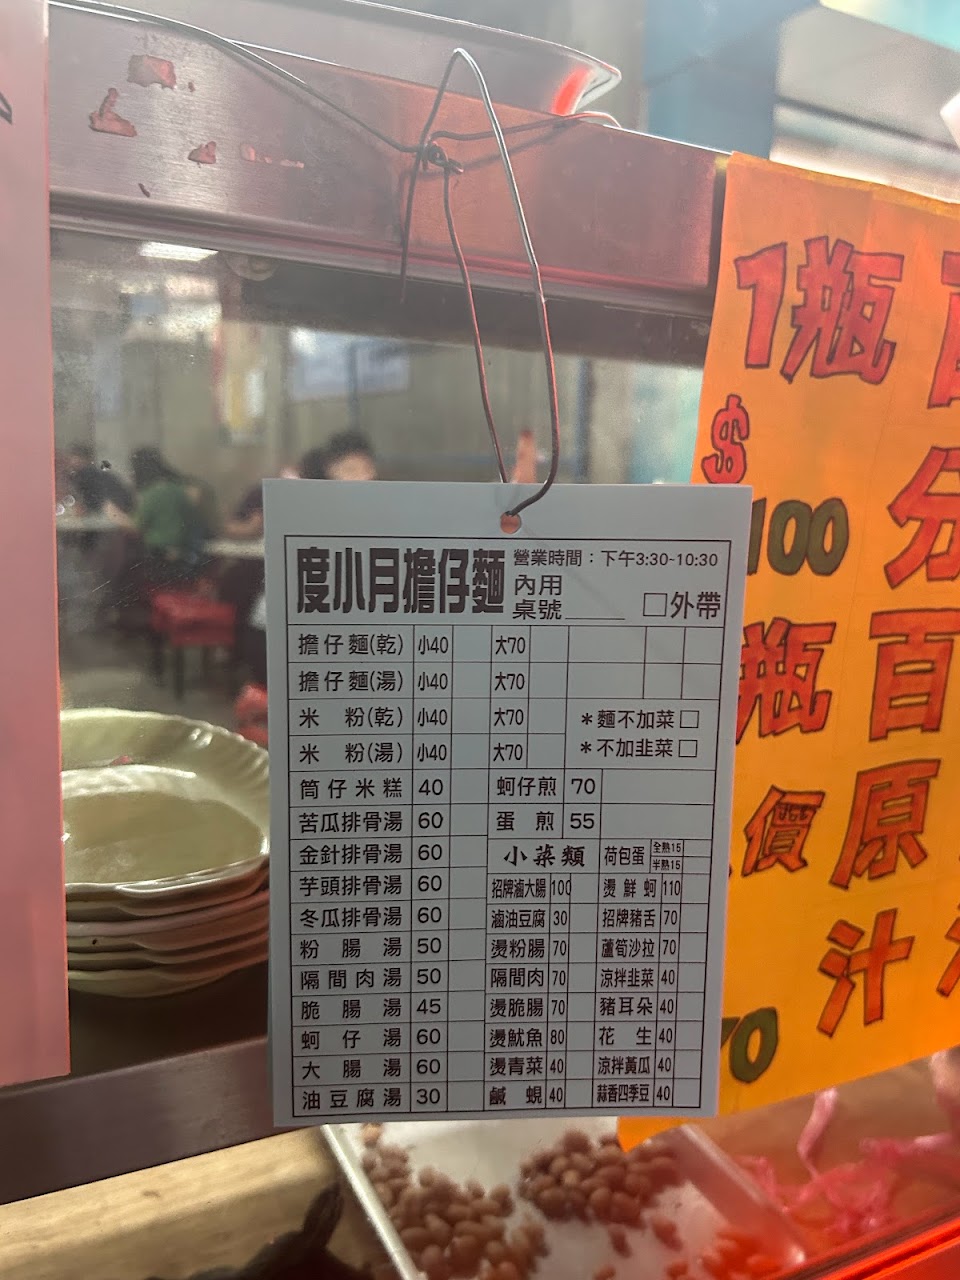 度小月擔仔麵
營業時間：下午3:30-10:30
內用
桌號____ □外帶
擔仔麵(乾) 小40 大70
擔仔麵(湯) 小40 大70
米粉(乾) 小40 大70 *麵不加菜□
米粉(湯) 小40 大70 *不加韭菜□
筒仔米糕 40 蚵仔煎 70
苦瓜排骨湯 60 蛋煎 55
金針排骨湯 60 小菜類 荷包蛋 全熟15 半熟15
芋頭排骨湯 60 招牌滷大腸 100 燙鮮蚵 110
冬瓜排骨湯 60 滷油豆腐 30 招牌豬舌 70
粉腸湯 50 燙粉腸 70 蘆筍沙拉 70
隔間肉湯 50 隔間肉 70 涼拌韭菜 40
脆腸湯 45 燙脆腸 70 豬耳朵 40
蚵仔湯 60 燙魷魚 80 花生 40
大腸湯 60 燙青菜 40 涼拌黃瓜 40
油豆腐湯 30 鹹蜆 40 蒜香四季豆 40
1瓶
$100
瓶
價
70
百分百原汁